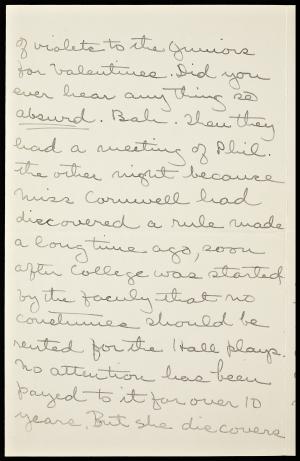 of violets to the Juniors
for Valentines. Did you
ever hear anything so
absurd. Bah. Then they
had a meeting of Phil.
the other night because
Miss Cornwell had
discovered a rule made
a long time ago, soon
after College was started
by the faculy that no
constumes should be
rented for the Hall plays.
No attention has been
payed to it for over 10
years. But she discovers